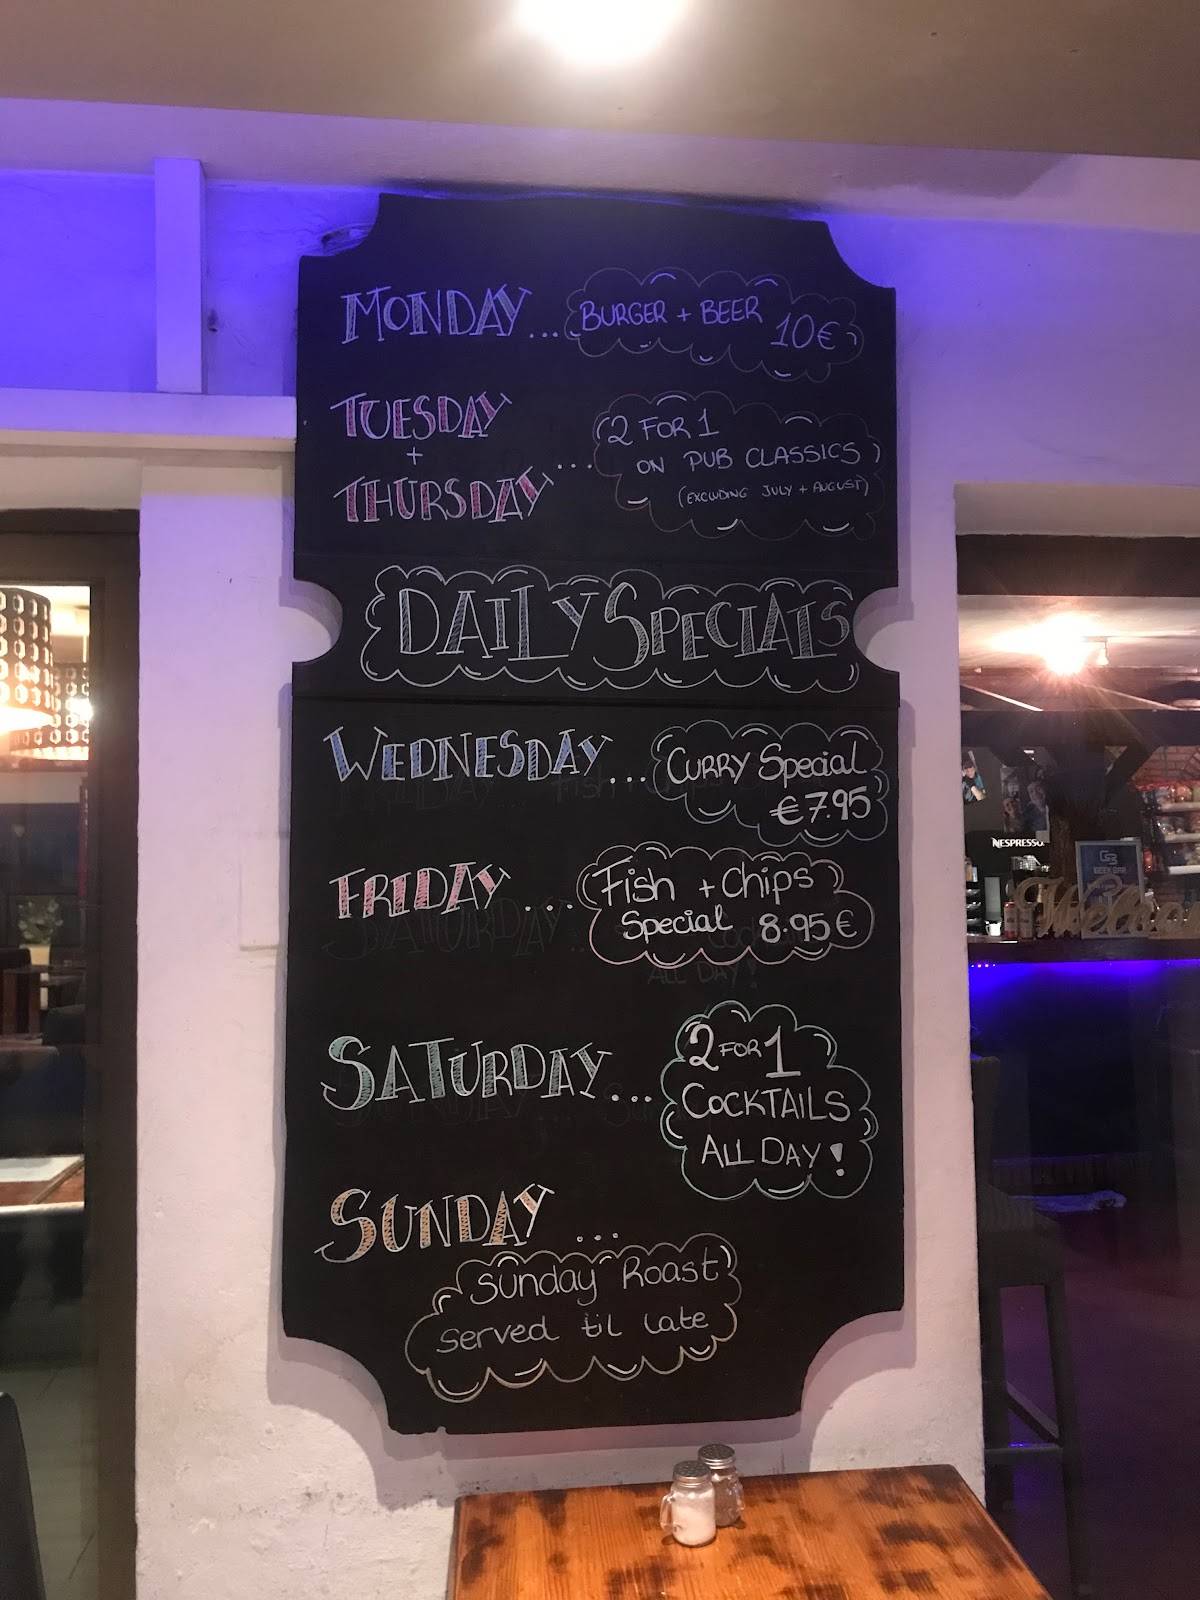 MONDAY... BURGER + BEER 10€
TUESDAY
+
THURSDAY ...
2 FOR 1
ON PUB CLASSICS
(EXCLUDING JULY + AUGUST)
DAILY SPECIALS
WEDNESDAY... CURRY Special
€7.95
FRIDAY ... Fish + Chips
Special 8.95€
SATURDAY... 2 FOR 1
COCKTAILS
ALL DAY!
SUNDAY ...
Sunday Roast
served til late
NESPRESSO